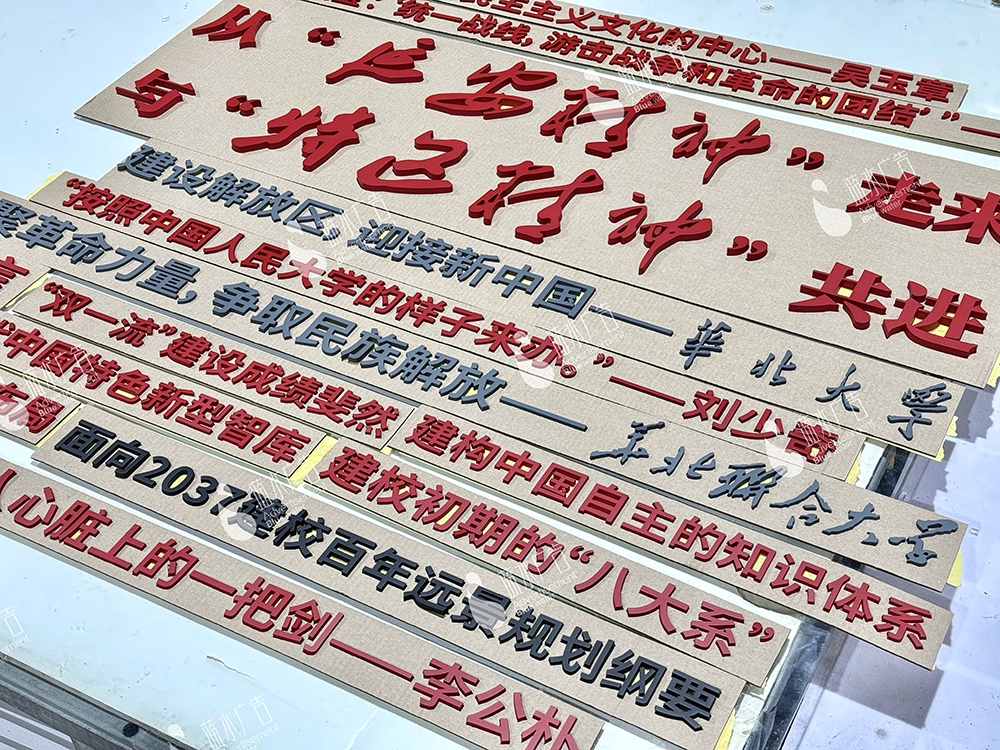 民主主义文化的中心——吴玉章
：“统一战线，游击战争和革命的团结’”—
从“延安精神”走来
与“特区精神”共进
建设解放区，迎接新中国——華北大學
“按照中国人民大学的样子来办。”——刘少奇
聚革命力量，争取民族解放——华北聯合大學
“双一流”建设成绩斐然
建构中国自主的知识体系
中国特色新型智库
建校初期的“八大系”
布局
面向2037建校百年远景规划纲要
人心脏上的一把剑——李公朴
蓝水广告
Bluewater Advertisement